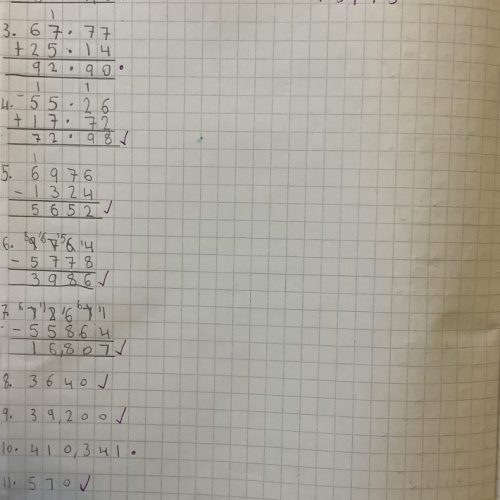 1
3. 67.77
+ 25.14
92.90
1 1
4. 55.26
+ 17.72
72.98 ✓
1
5. 6976
- 1324
5652 ✓
6.
- 5778
3986 ✓
7.
- 55864
16,807 ✓
8. 3640 ✓
9. 39,200 ✓
10. 410,341
11. 570 ✓